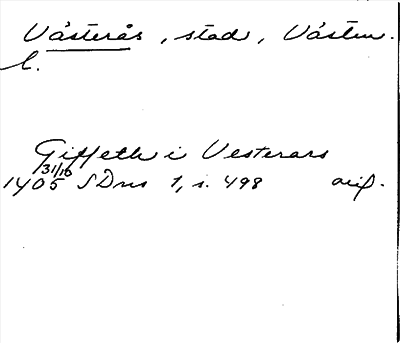 Västerås, stad, Västm.
l.
Giffeth i Vesterars
31/10
1405 SDns 1, s. 498 orig.